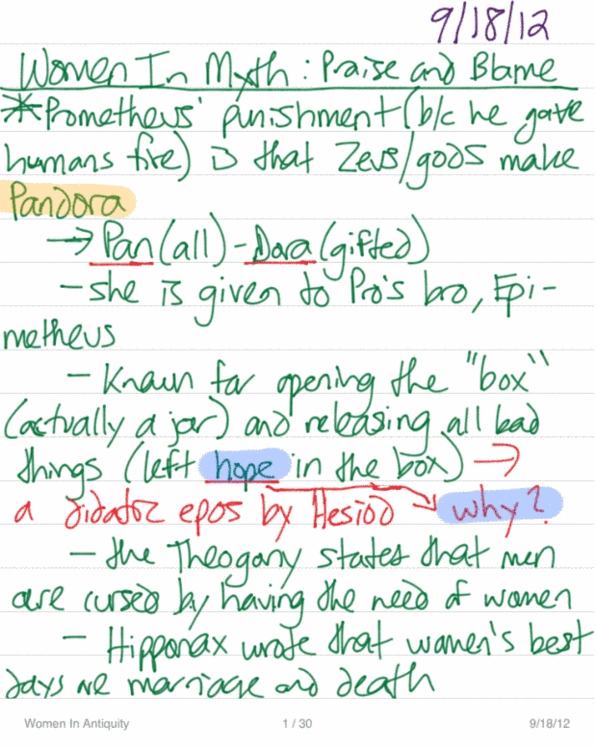 9/18/12
Women In Myth: Praise and Blame
*Prometheus' punishment (b/c he gave
humans fire) is that Zeus/gods make
Pandora
→ Pan(all)-Dora(gifted)
- she is given to Pro's bro, Epi-
metheus
- Known for opening the "box"
(actually a jar) and releasing all bad
things (left hope in the box) →
a didatic epos by Hesiod why?
- the Theogany states that men
are cursed by having the need of women
- Hipponax wrote that women's best
days are marriage and death
Women In Antiquity 1 / 30 9/18/12